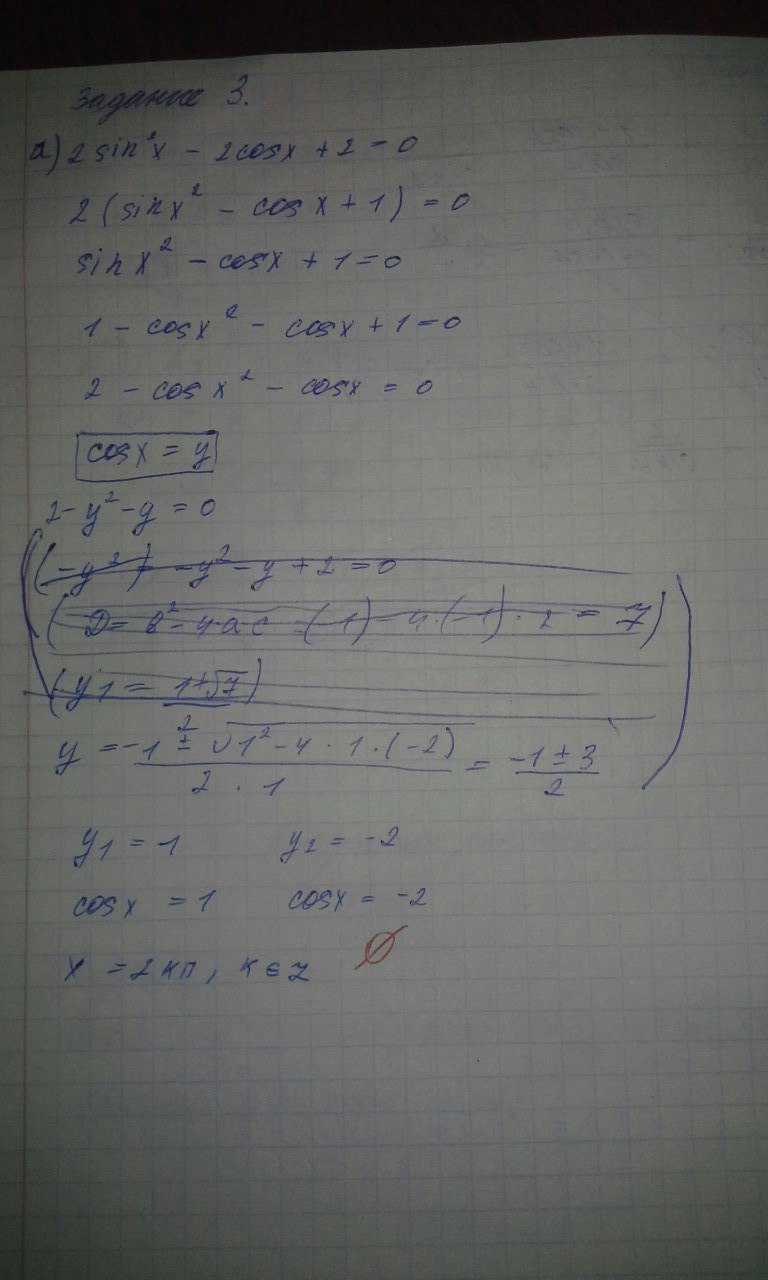 Задание 3.
а) 2 sin²x - 2cosx + 2 = 0
2 (sinx² - cosx + 1) = 0
sinx² - cosx + 1 = 0
1 - cosx² - cosx + 1 = 0
2 - cosx² - cosx = 0
cosx = y
2 - y² - y = 0
(-y²) - y² - y + 2 = 0
(D = b² - 4ac (-1) - 4·(-1)·2 = 7)
(y₁ = 1±√7)
y = -1 ± √1² - 4·1·(-2) / 2·1 = -1 ± 3 / 2
y₁ = 1 y₂ = -2
cosx = 1 cosx = -2
x = 2кπ, к ∈ z ∅